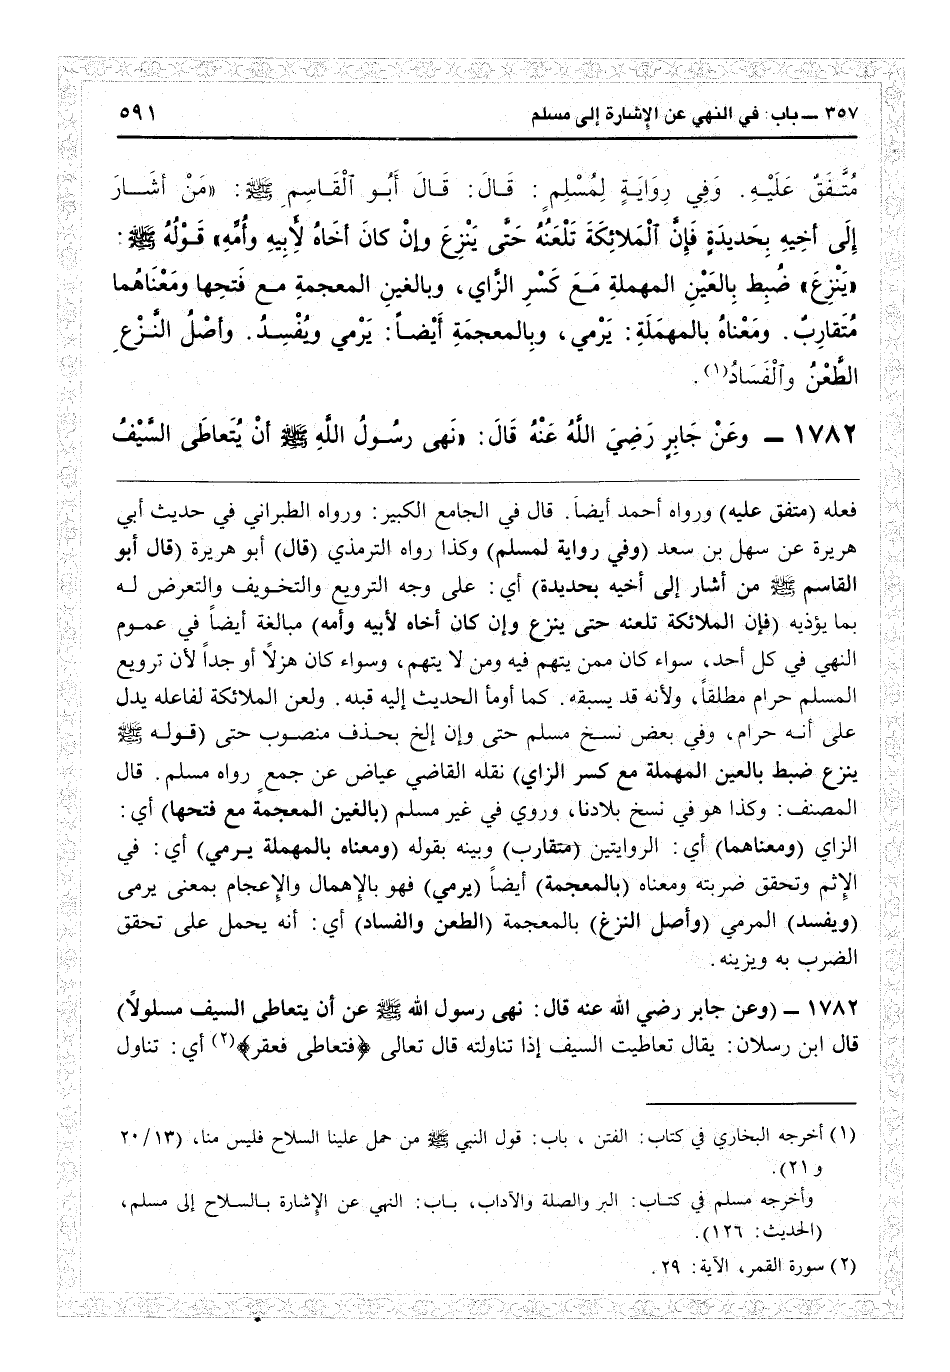 ٣٥٧ ــ باب: في النهي عن الإِشارة إلى مسلم ٥٩١
مُتَّفَقٌ عَلَيْهِ. وَفِي رِوَايَةٍ لِمُسْلِمٍ: قَالَ: قَالَ أَبُو ٱلْقَاسِمِ ﷺ: «مَنْ أشَـارَ
إِلَى أخِيهِ بِحَدِيدَةٍ فَإِنَّ ٱلْمَلائِكَةَ تَلْعَنُهُ حَتَّى يَنْزِعَ وإنْ كانَ أخَاهُ لأَبِيهِ وأُمِّهِ» قَوْلُهُ ﷺ:
«يَنْزِعَ» ضُبِط بِالعَيْنِ المهملةِ مَعَ كَسْرِ الزَّاي، وبالغينِ المعجمةِ مـع فَتحِها ومَعْنَاهُما
مُتَقاربٌ. ومَعْناهُ بالمهمَلَةِ: يَرْمي، وبِالمعجمَةِ أيْضاً: يَرْمي ويُفْسِدُ. وأصْلُ النَّزْعِ
الطَّعْنُ وٱلْفَسَادُ(١).
١٧٨٢ ــ وعَنْ جَابِرٍ رَضِيَ اللَّهُ عَنْهُ قَالَ: «نَهى رسُولُ اللَّهِ ﷺ أنْ يُتَعاطَى السَّيْفُ
فعله (متفق عليه) ورواه أحمد أيضاً. قال في الجامع الكبير: ورواه الطبراني في حديث أبي
هريرة عن سهل بن سعد (وفي رواية لمسلم) وكذا رواه الترمذي (قال) أبو هريرة (قال أبو
القاسم ﷺ من أشار إلى أخيه بحديدة) أي: على وجه الترويع والتخـويف والتعرض لـه
بما يؤذيه (فإن الملائكة تلعنه حتى ينزع وإن كان أخاه لأبيه وأمه) مبالغة أيضاً في عمـوم
النهي في كل أحد، سواء كان ممن يتهم فيه ومن لا يتهم، وسواء كان هزلاً أو جداً لأن ترويع
المسلم حرام مطلقاً، ولأنه قد يسبقه. كما أومأ الحديث إليه قبله. ولعن الملائكة لفاعله يدل
على أنـه حرام، وفي بعض نسـخ مسلم حتى وإن إلخ بحـذف منصـوب حتى (قـولـه ﷺ
ينزع ضبط بالعين المهملة مع كسر الزاي) نقله القاضي عياض عن جمع رواه مسلم. قال
المصنف: وكذا هو في نسخ بلادنا، وروي في غير مسلم (بالغين المعجمة مع فتحها) أي:
الزاي (ومعناهما) أي: الروايتين (متقارب) وبينه بقوله (ومعناه بالمهملة يـرمي) أي: في
الإِثم وتحقق ضربته ومعناه (بالمعجمة) أيضاً (يرمي) فهو بالإِهمال والإِعجام بمعنى يرمى
(ويفسد) المرمي (وأصل النزغ) بالمعجمة (الطعن والفساد) أي: أنه يحمل على تحقق
الضرب به ويزينه.
١٧٨٢ ــ (وعن جابر رضي الله عنه قال: نهى رسول الله ﷺ عن أن يتعاطى السيف مسلولاً)
قال ابن رسلان: يقال تعاطيت السيف إذا تناولته قال تعالى ﴿فتعاطى فعقر﴾(٢) أي: تناول
(١) أخرجه البخاري في كتاب: الفتن ، باب: قول النبي ﷺ من حمل علينا السلاح فليس منا، (٢٠/١٣
و ٢١).
وأخرجه مسلم في كتـاب: البر والصلة والآداب، بـاب: النهي عن الإِشارة بـالسـلاح إلى مسلم،
(الحديث: ١٢٦).
(٢) سورة القمر، الآية: ٢٩.